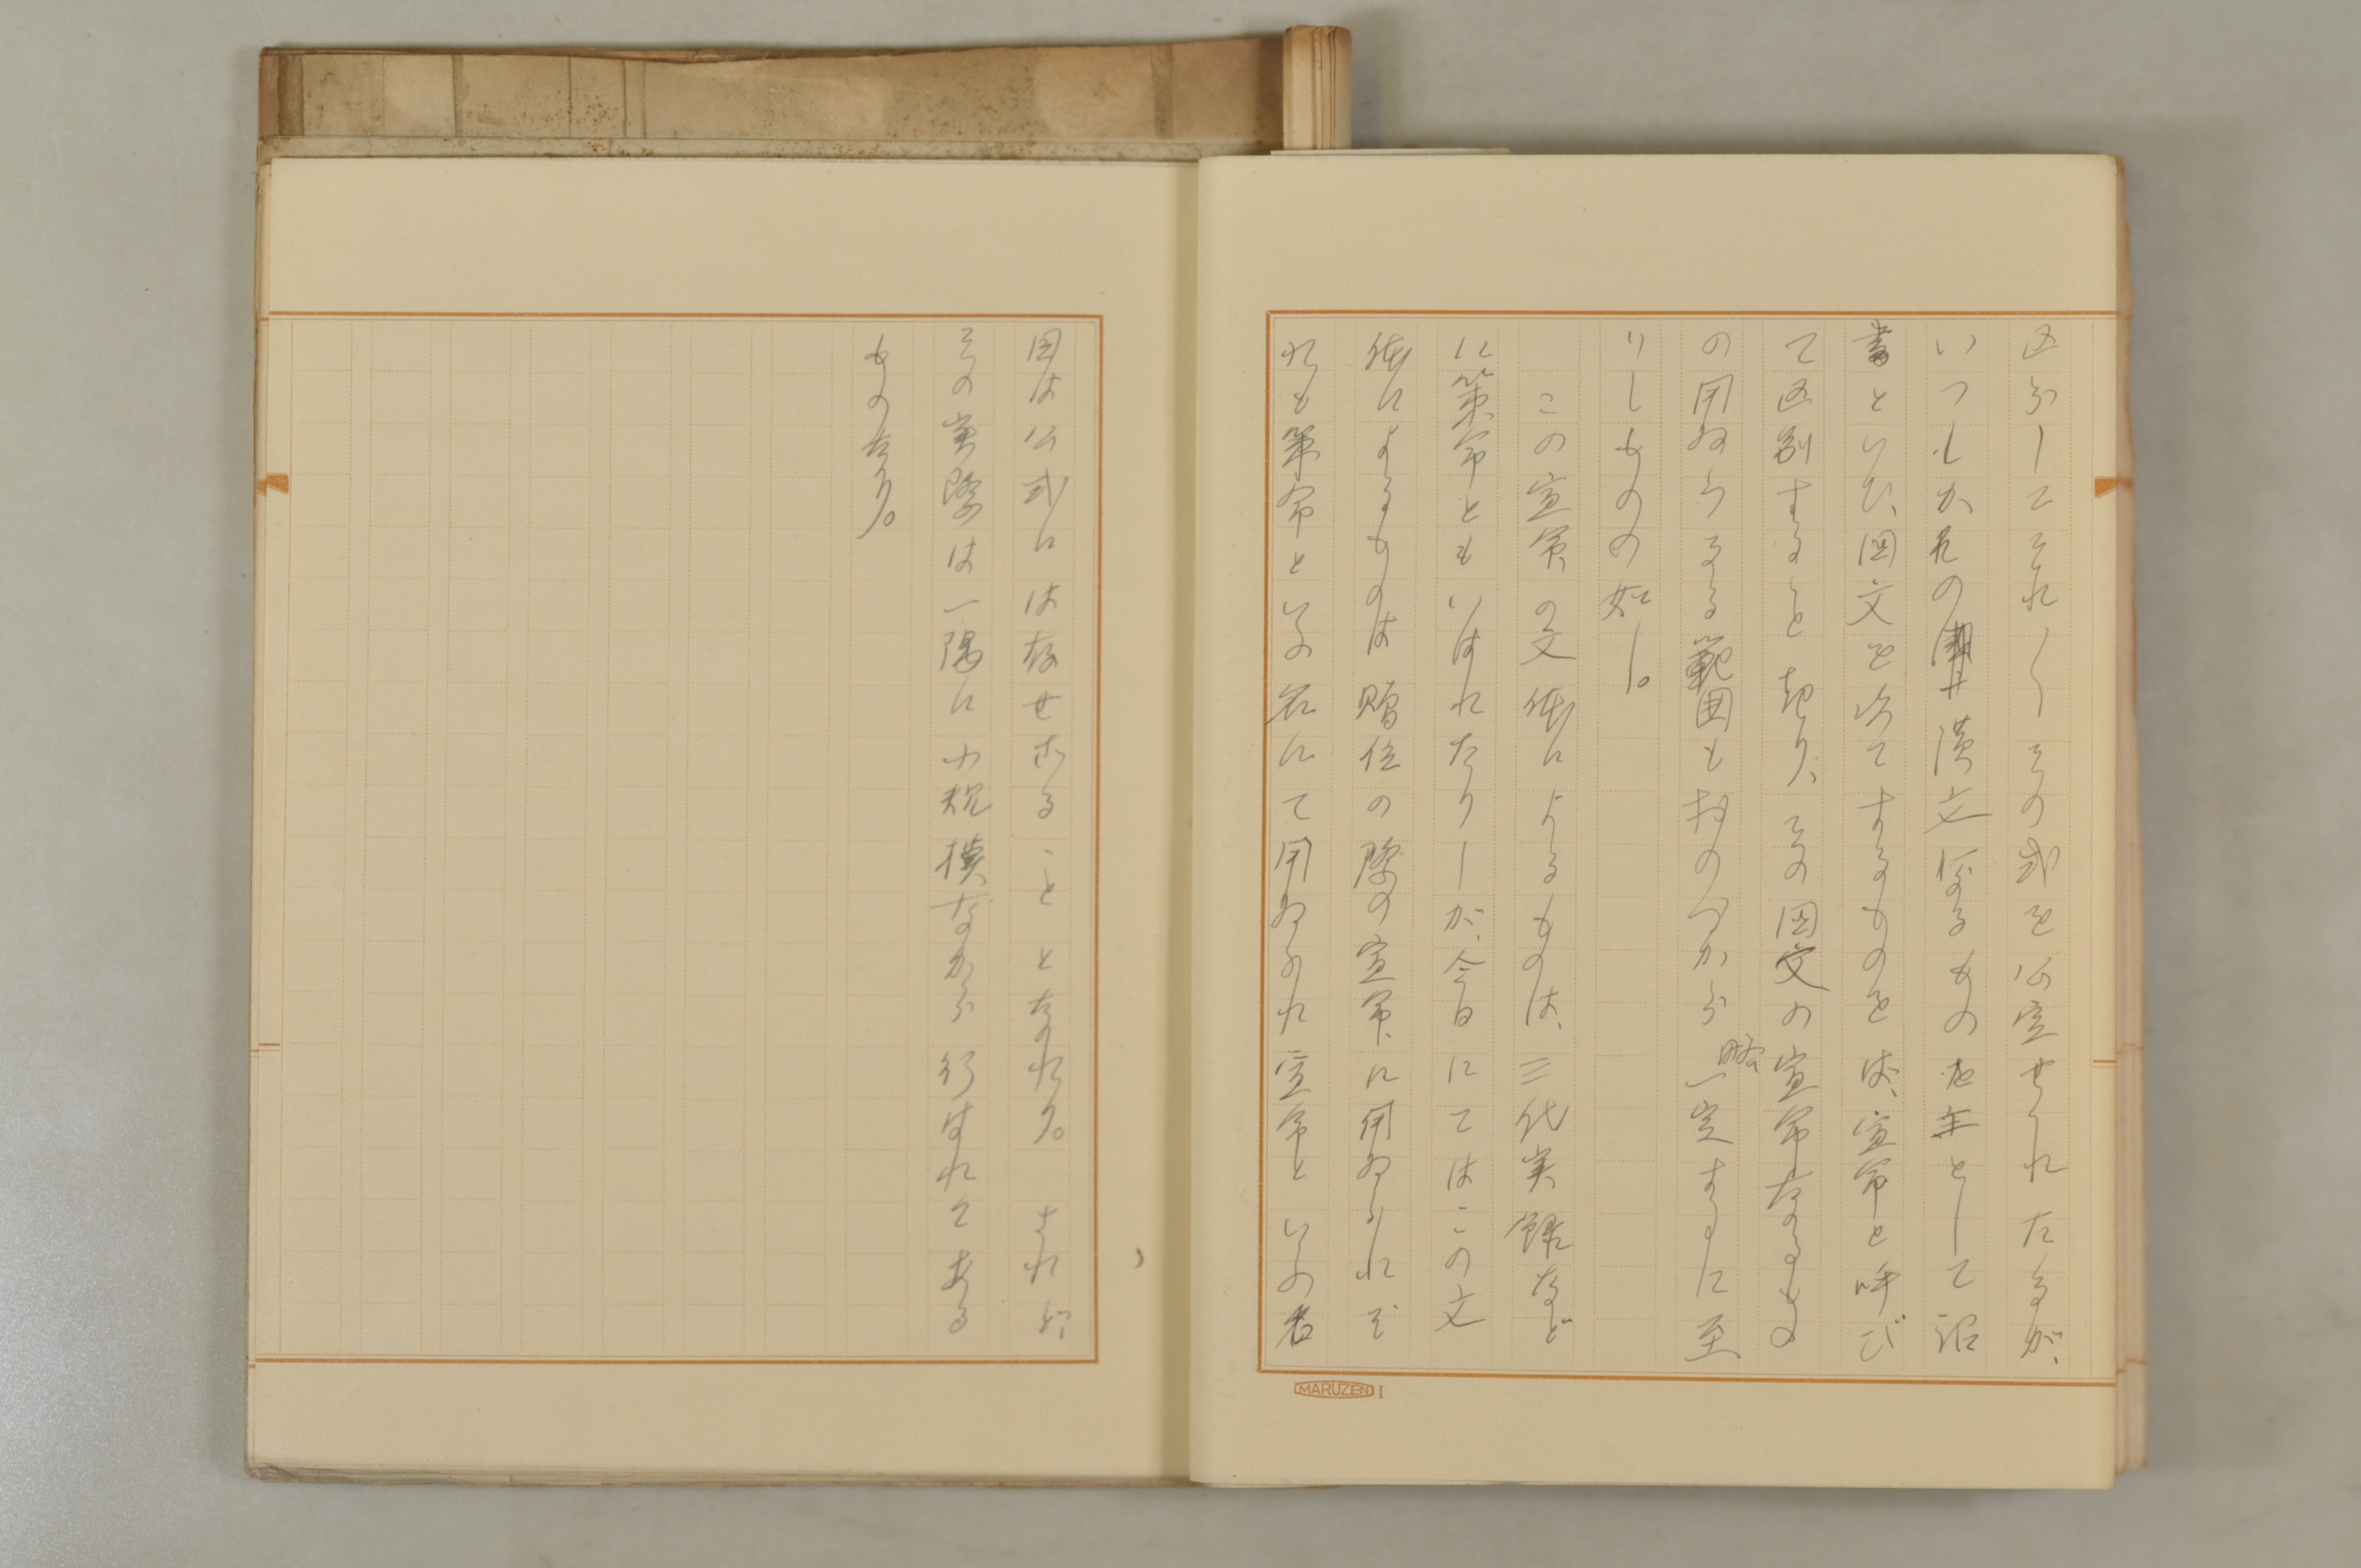 区分してそれ〳〵その式を公定せられたるが、
いつしかその漢文なるものを主として詔
書といひ、国文を以てするものをば、宣命と呼び
て区別すること起り、その国文の宣命なるもの
の用ゐらるる範囲もおのづから略一定するに至
りしものの如し。
この宣命の文体によるものは、三代実録など
に策命ともいはれたりしが、今日にてはこの文
体によるものは贈位の際の宣命に用ゐられそ
れも策命といふ名にて用ゐられ宣命といふ名
目は公式には存せざることとなれり。されど
その実際は一隅に小規模ながら行はれてある
ものなり。
MARUZEN I